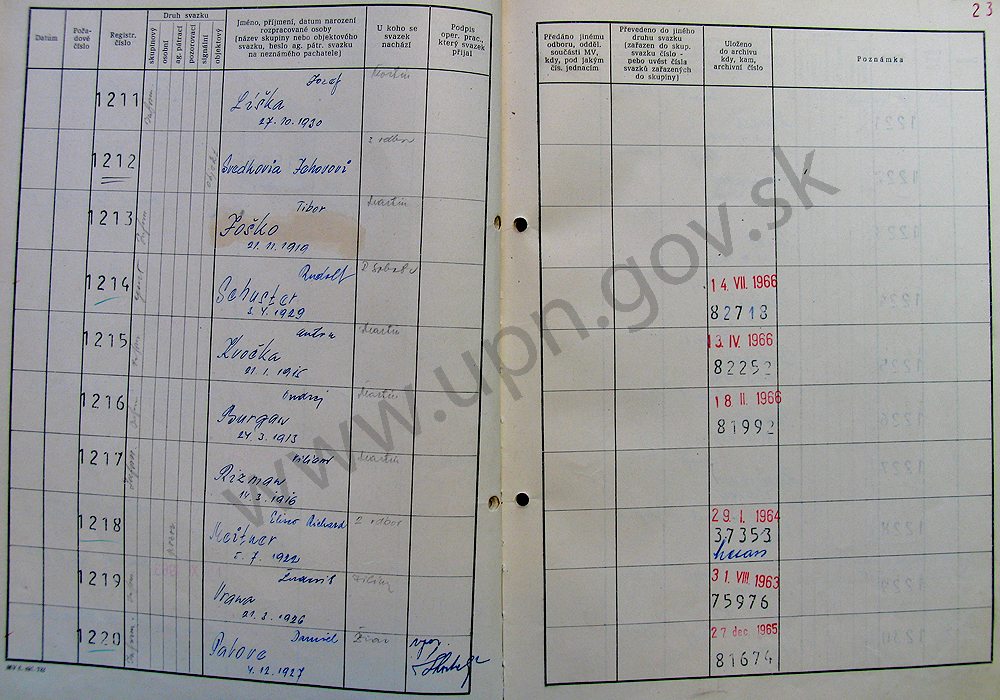 23
Datum
Pořadové číslo
Registr. číslo
Druh svazku
skupinový
osobní
ag. pátrací
pozorovací
signální
objektový
Jméno, příjmení, datum narození
rozpracované osoby
(název skupiny nebo objektového
svazku, heslo ag. pátr. svazku
na neznámého pachatele)
U koho se
svazek
nachází
Podpis
oper. prac.,
který svazek
přijal
Předáno jinému
odboru, odděl.
součásti MV,
kdy, pod jakým
čís. jednacím
Převedeno do jiného
druhu svazku
(zařazen do skup.
svazku číslo -
nebo uvést čísla
svazků zařazených
do skupiny)
Uloženo
do archivu
kdy, kam,
archivní číslo
Poznámka
1211
Jozef
Líška
27.10.1930
Martin
1212
Svedkovia Jehovovi
2 odbor
1213
Tibor
Joško
21.11.1919
Martin
1214
Rudolf
Schuster
3.4.1929
14. VII. 1966
82718
1215
Anton
Kvočka
21.1.1915
Martin
13. IV. 1966
82252
1216
Ondrej
Burgan
24.3.1913
Martin
18. II. 1966
81992
1217
Viliam
Rizman
14.3.1916
Martin
1218
Richard
Meitner
5.7.1922
2 odbor
29. I. 1964
37353
1219
Ľudovít
Vrana
21.3.1926
Žilina
31. VIII. 1963
75976
1220
Daniel
4.12.1927
27 dec. 1965
81674
www.upn.gov.sk